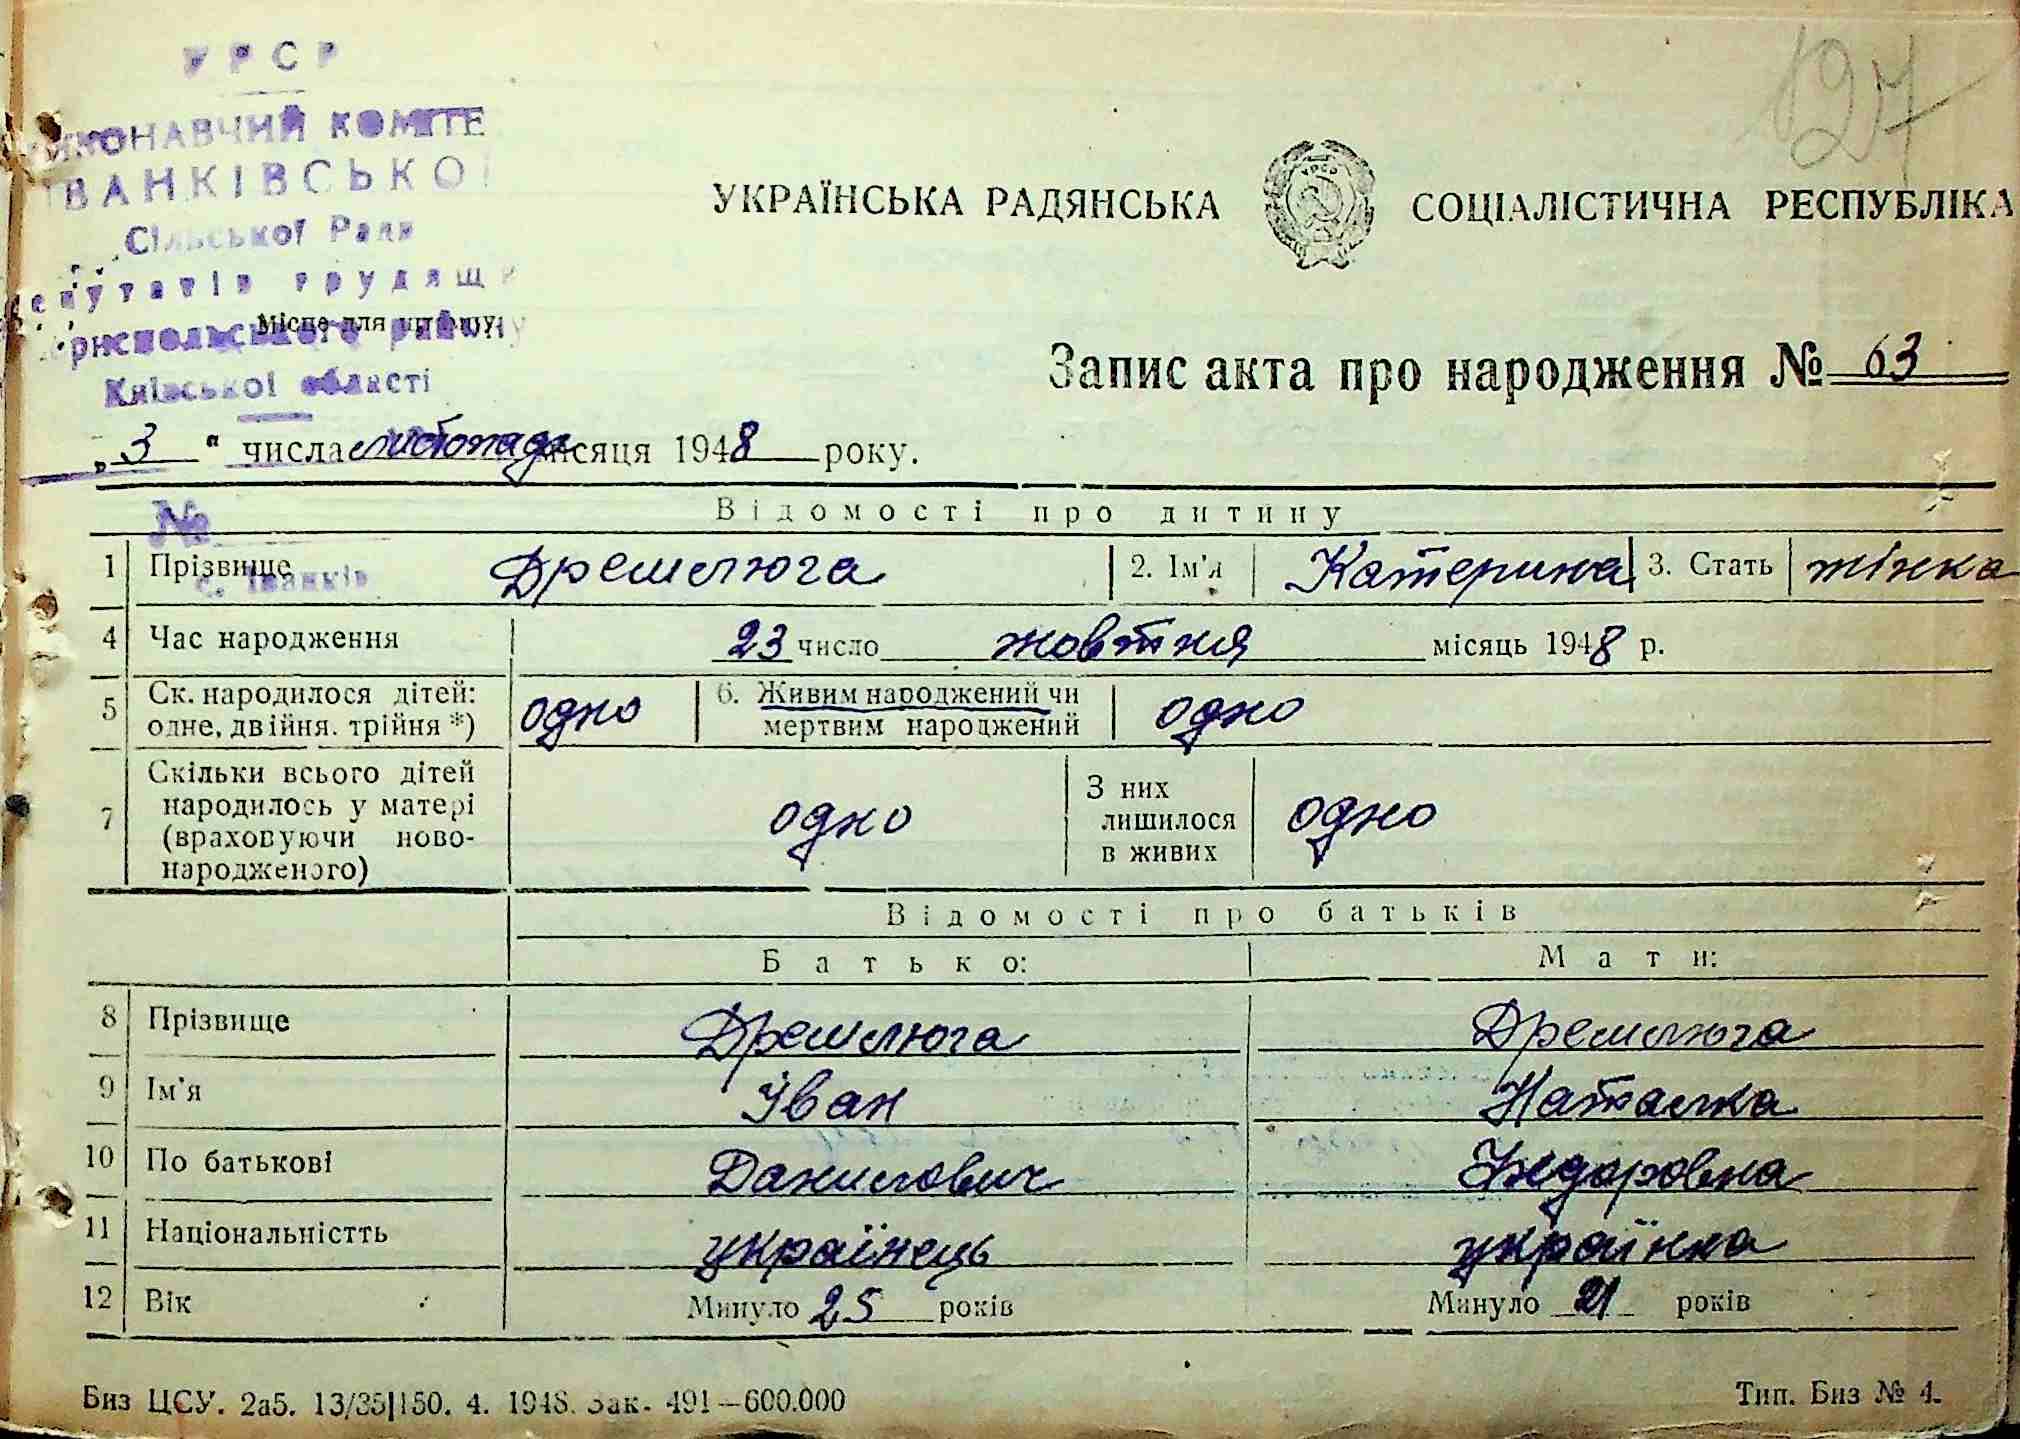 УРСР
ИКОНАВЧИЙ КОМІТЕ
ІВАНКІВСЬКОЇ
Сільської Ради
епутатів трудящи
Місце для штампу
ориспольського району
Київської області
127
УКРАЇНСЬКА РАДЯНСЬКА СОЦІАЛІСТИЧНА РЕСПУБЛІКА
Запис акта про народження № 63
„3" числа листопада місяця 1948 року.
№
Відомості про дитину
1 Прізвище Дремлюга 2. Ім'я Катерина 3. Стать жінка
с. Іванків
4 Час народження 23 число жовтня місяць 1948 р.
5 Ск. народилося дітей: одне, двійня, трійня *) одно 6. Живим народжений чи мертвим народжений одно
7 Скільки всього дітей народилось у матері (враховуючи ново-народженого) одно З них лишилося в живих одно
Відомості про батьків
Батько: Мати:
8 Прізвище Дремлюга Дремлюга
9 Ім'я Іван Наталка
10 По батькові Данилович Федоровна
11 Національністть українець українка
12 Вік Минуло 25 років Минуло 21 років
Биз ЦСУ. 2а5. 13/35|150. 4. 1948. Зак. 491—600.000 Тип. Биз № 4.